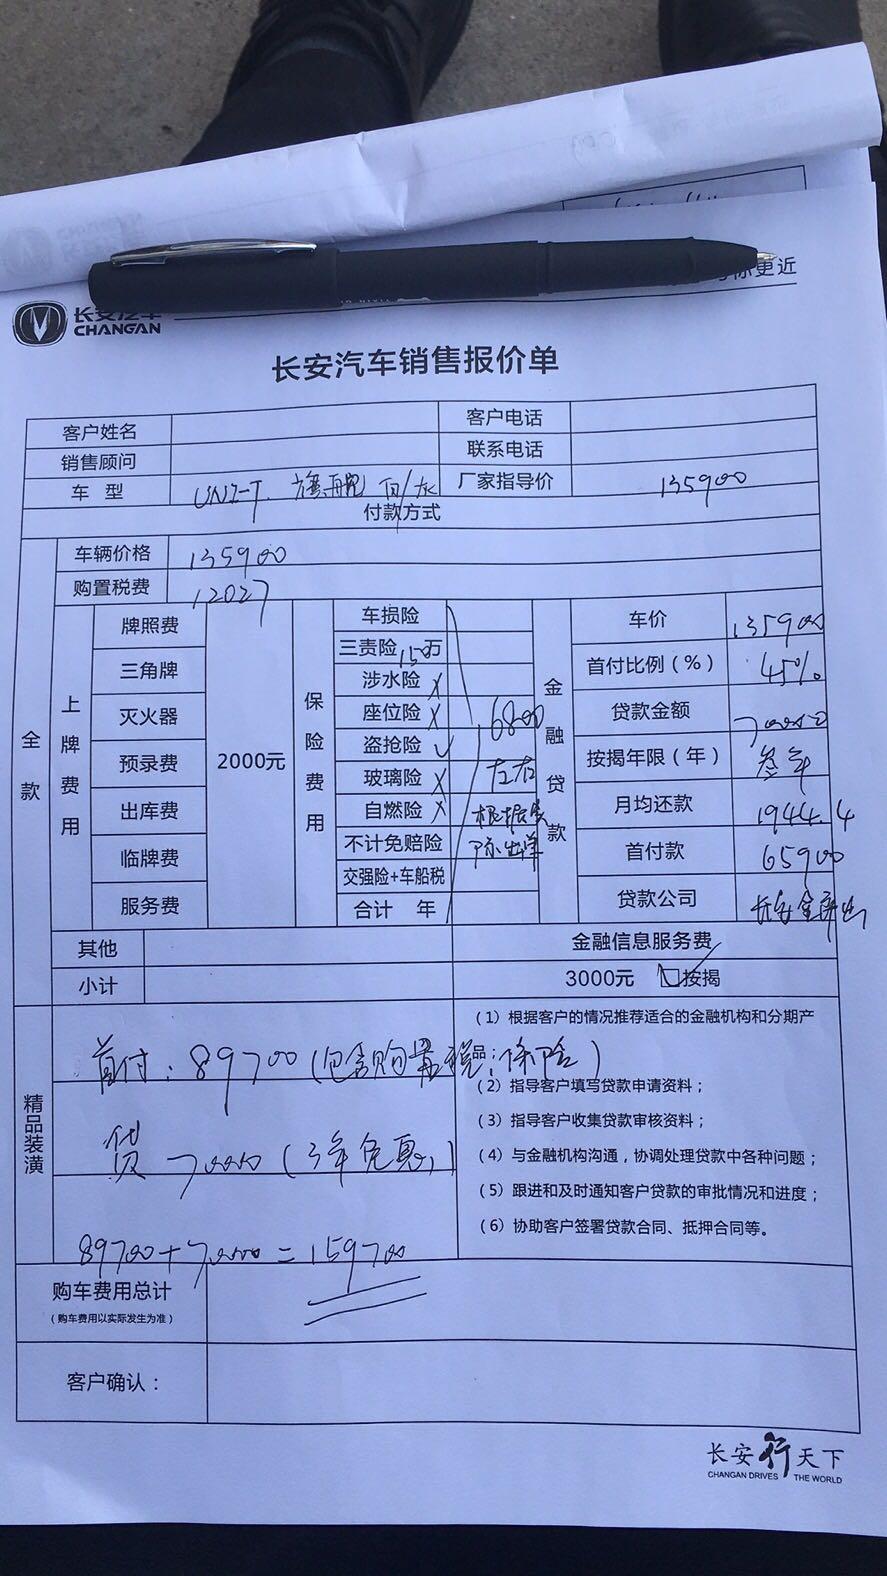 更近
长安汽车
CHANGAN
长安汽车销售报价单
客户姓名 客户电话
销售顾问 联系电话
车 型 UNI-T 旗舰 白/灰 厂家指导价 135900
付款方式
全款
车辆价格 135900
购置税费 12027
上牌费用
牌照费
三角牌
灭火器
预录费
出库费
临牌费
服务费
2000元
保险费用
车损险
三责险 150万
涉水险 X
座位险 X
盗抢险 ✓
玻璃险 X
自燃险 X
不计免赔险
交强险+车船税
合计 年
6800
左右
根据实
际出单
金融贷款
车价 135900
首付比例（%） 45%
贷款金额 70000
按揭年限（年） 叁年
月均还款 1944.4
首付款 65900
贷款公司 长安金融
其他
小计
金融信息服务费
3000元 ☑按揭
精品装潢
首付：89700（包含购置税，保险）
贷 70000（3年免息）
89700+70000=159700
（1）根据客户的情况推荐适合的金融机构和分期产
品；
（2）指导客户填写贷款申请资料；
（3）指导客户收集贷款审核资料；
（4）与金融机构沟通，协调处理贷款中各种问题；
（5）跟进和及时通知客户贷款的审批情况和进度；
（6）协助客户签署贷款合同、抵押合同等。
购车费用总计
（购车费用以实际发生为准）
客户确认：
长安行天下
CHANGAN DRIVES THE WORLD